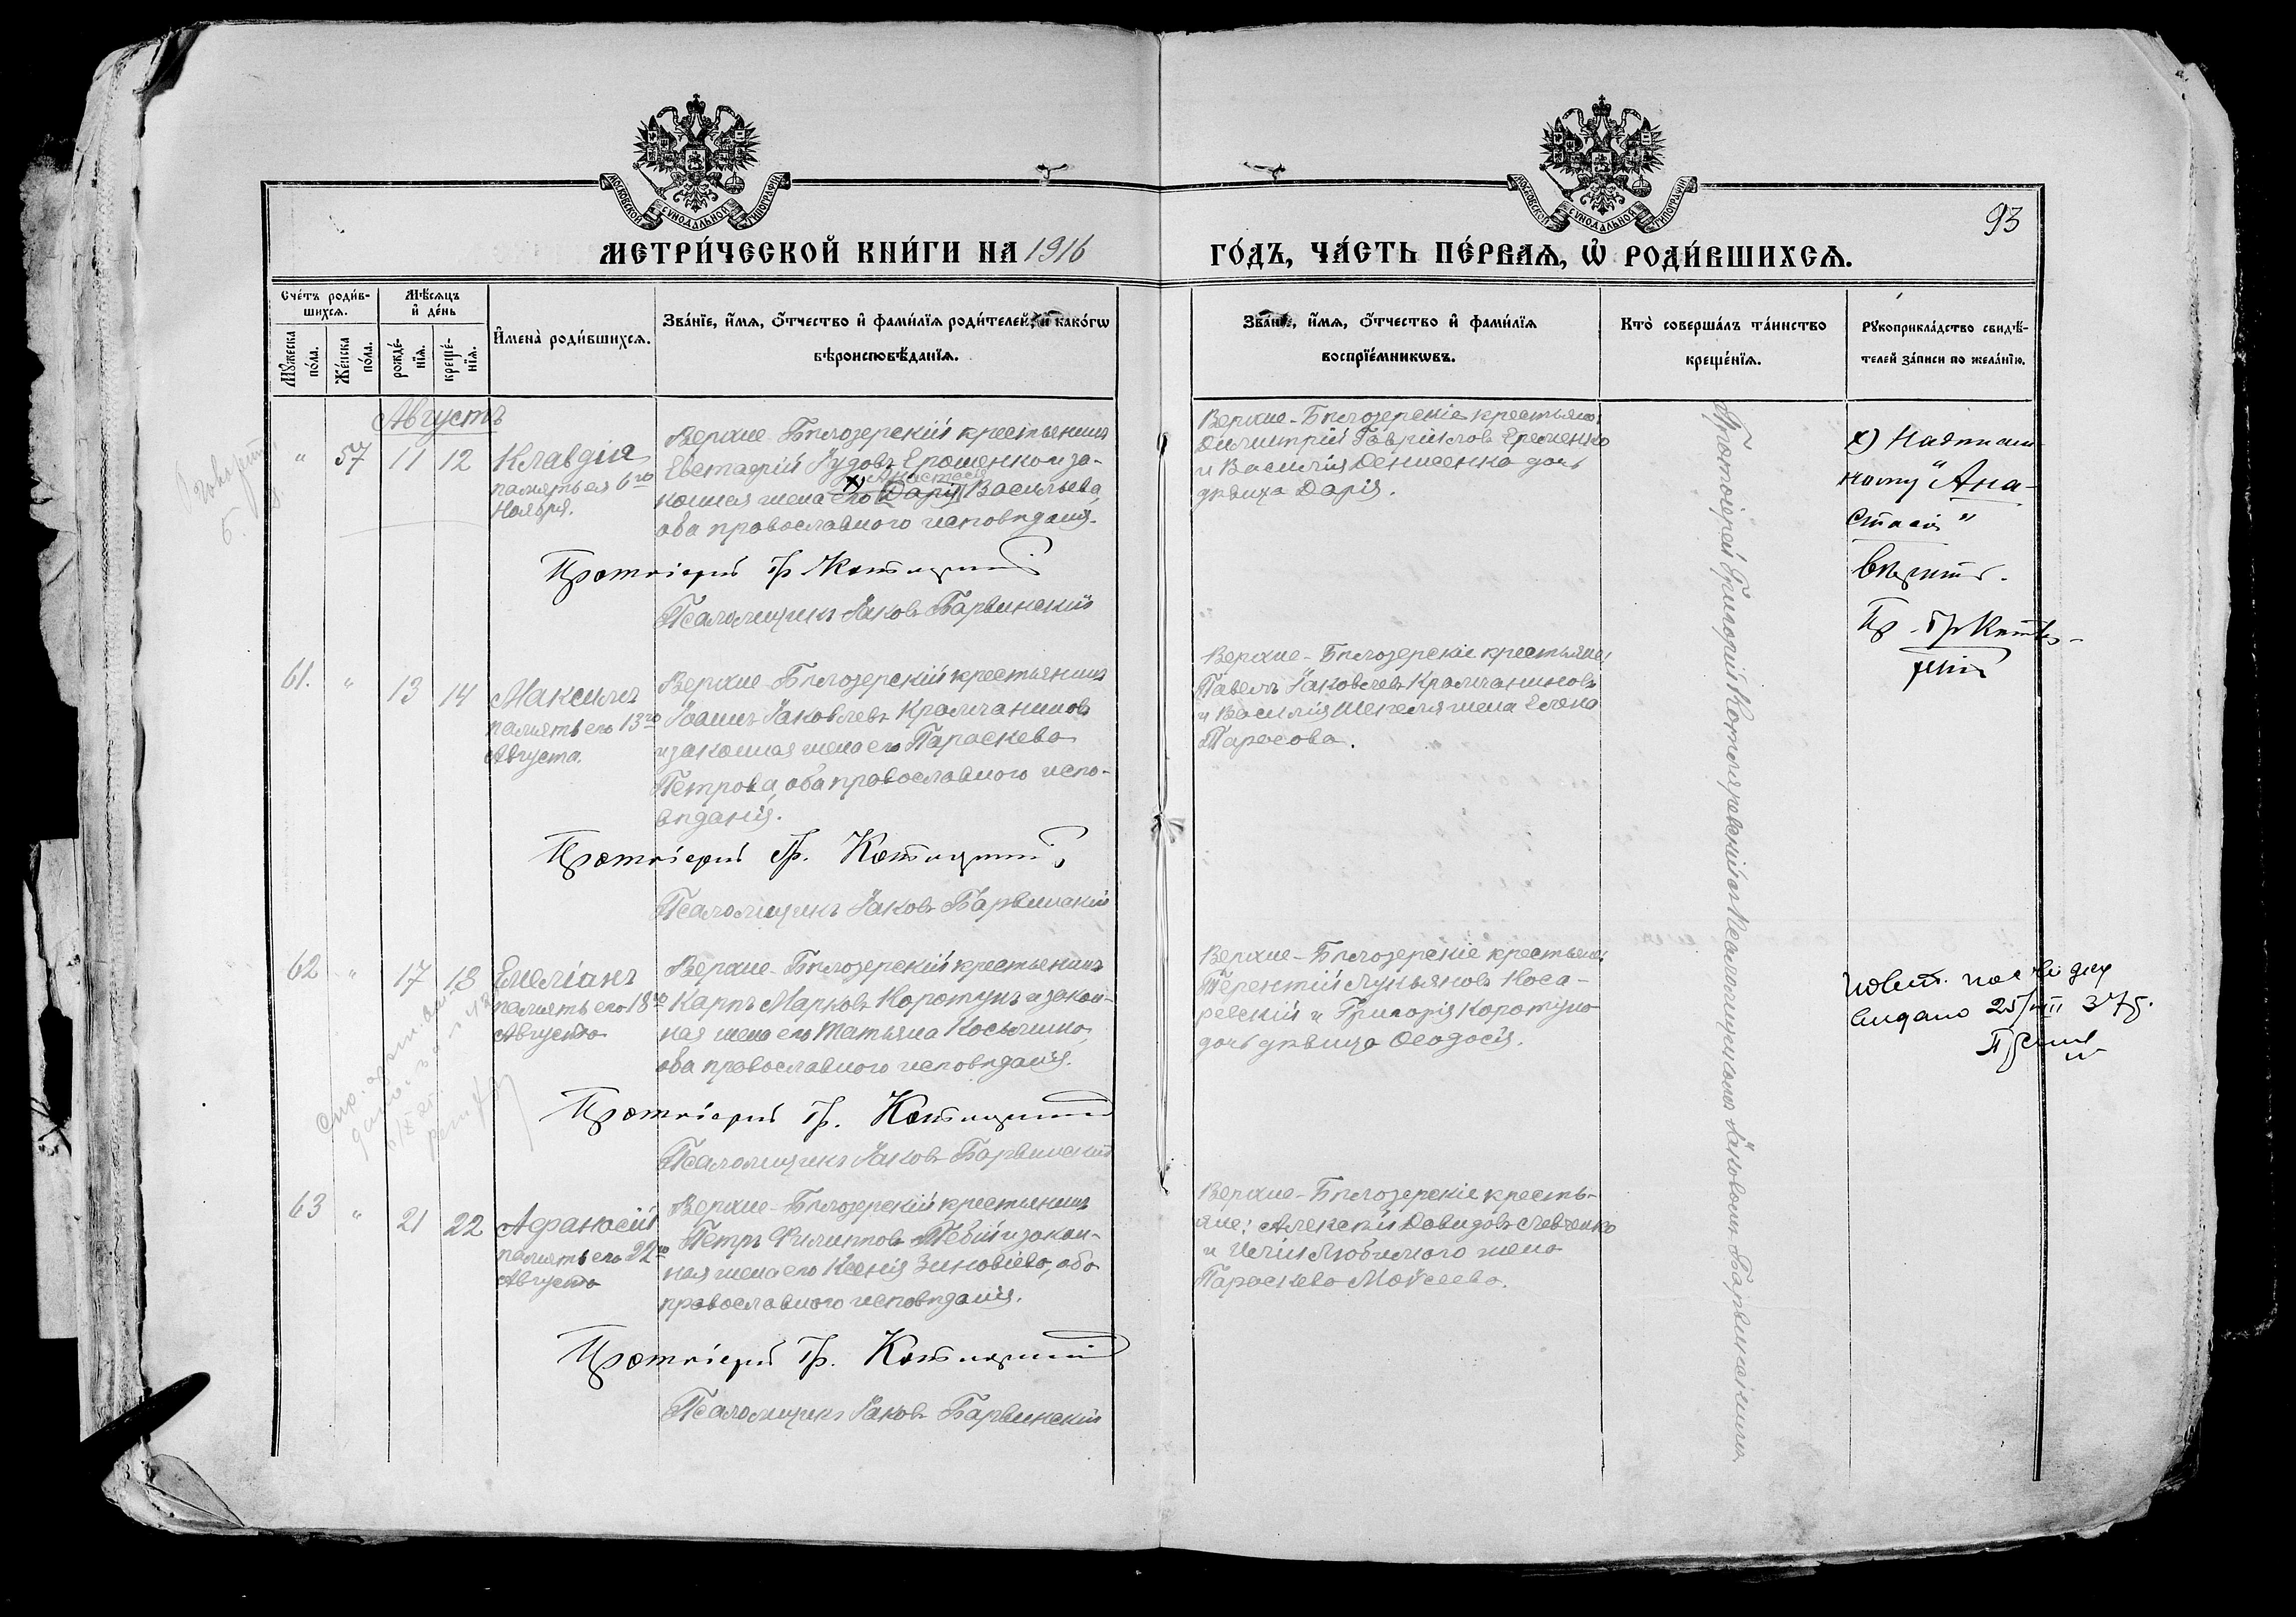 МОСКОВСКОЙ СѴНОДАЛЬНОЙ ТИПОГРАФІИ
МОСКОВСКОЙ СѴНОДАЛЬНОЙ ТИПОГРАФІИ
93
МЕТРИ́ЧЕСКОЙ КНИ́ГИ НА 1916
ГО́ДЪ, ЧА́СТЬ ПЕ́РВАѦ, Ѡ҆ РОДИ́ВШИХСѦ.
Сче́тъ роди́в-
шихсѧ.
Мꙋ́жеска
по́ла.
Же́нска
по́ла.
Мѣ́сѧцъ
и҆ де́нь
рожде́-
нїѧ.
креще́-
нїѧ.
И҆мена̀ роди́вшихсѧ.
Зва́нїе, и҆́мѧ, ѻ҆́тчество и҆ фами́лїѧ роди́телей, и҆ како́гѡ
вѣроисповѣ́данїѧ.
Зва́нїе, и҆́мѧ, ѻ҆́тчество и҆ фами́лїѧ
воспрїе́мникѡвъ.
Кто̀ соверша́лъ та́инство
креще́нїѧ.
Рꙋкоприкла́дство свидѣ́-
телей за́писи по жела́нїю.
Августъ
" 57 11 12
Клавдія
память ея 6го
Ноября.
Верхне-Бѣлозерскій крестьянинъ
Евстафій Іудовъ Ерошенко и за-
Анастасія
конная жена его х) Дарія Васильева,
оба православнаго исповѣданія.
Протоіерей Гр. Котляревскій
Псаломщикъ Іаковъ Барвинскій
Верхне-Бѣлозерскіе крестьяне:
Димитрій Гавріиловъ Еременко
и Василія Денисенка дочь
дѣвица Дарія.
х) Надписан-
ному "Ана-
стасія"
вѣрить.
Пр. Гр Котля-
ревскій
Протоіерей Григорій Котляревскій съ псаломщикомъ Іаковомъ Барвинскимъ
61. " 13 14
Максимъ
память его 13го
Августа.
Верхне-Бѣлозерскій крестьянинъ
Іоаннъ Іаковлевъ Крамчаниновъ
и законная жена его Параскева
Петрова, оба православнаго испо-
вѣданія.
Протоіерей Гр. Котляревскій
Псаломщикъ Іаковъ Барвинскій
Верхне-Бѣлозерскіе крестьяне:
Павелъ Іаковлевъ Крамчаниновъ
и Василія Шенгеля жена Елена
Тарасова.
62 " 17 18
Емеліанъ
память его 18го
Августа
Верхне-Бѣлозерскій крестьянинъ
Карпъ Марковъ Коротунъ и закон-
ная жена его Татьяна Косьмина,
оба православнаго исповѣданія.
Протоіерей Гр. Котляревскій
Псаломщикъ Іаковъ Барвинскій
Верхне-Бѣлозерскіе крестьяне:
Терентій Лукьяновъ Коса-
ревскій и Григорія Коротуна
дочь дѣвица Ѳеодосія.
видано 25/VIII 37 р.
63 " 21 22
Афанасій
память его 22го
Августа
Верхне-Бѣлозерскій крестьянинъ
Петръ Филипповъ Тебій и закон-
ная жена его Ксенія Зиновіева, оба
православнаго исповѣданія.
Протоіерей Гр. Котляревскій
Псаломщикъ Іаковъ Барвинскій
Верхне-Бѣлозерскіе кресть-
яне: Алексѣй Давидовъ Левченко
и Иліи Любимаго жена
Параскева Моѵсеева.